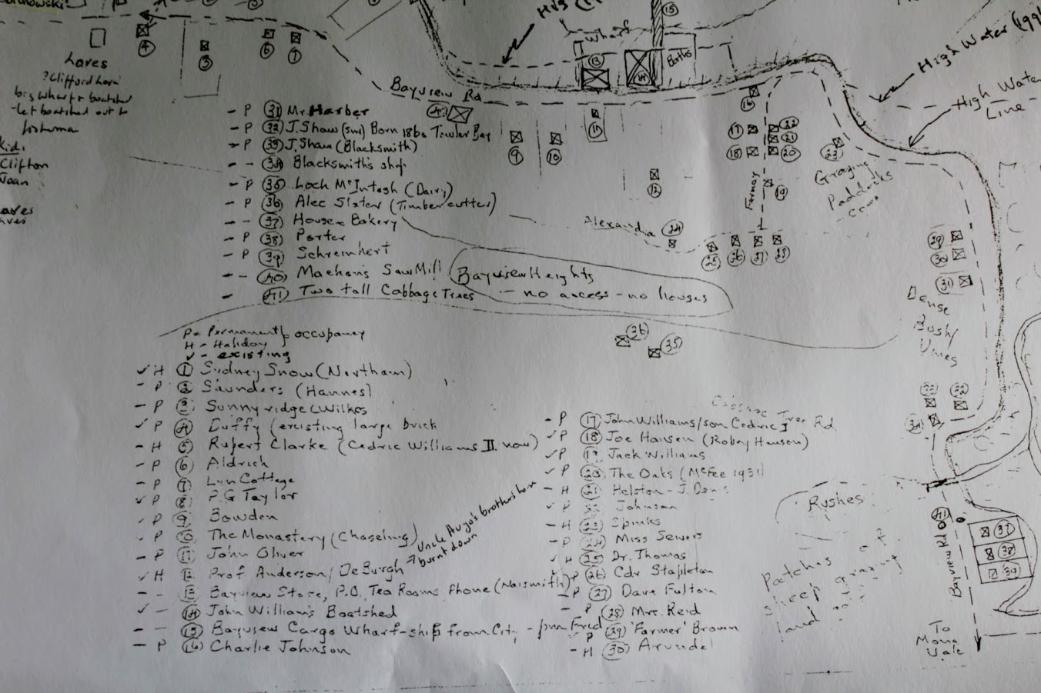 Wharf
Baths
High Water
High Water
Line
lores
?Clifford
big wharf + boatshed
- let boatshed out to
Clifton
Joan
Bayview Rd
- P (31) Mr Harber
- P (32) J. Shaw (snr) Born 1860 Towler Bay
- P (33) J. Shaw (Blacksmith)
- - (34) Blacksmith's shop
- P (35) Loch McIntosh (Dairy)
- P (36) Alec Sister (Timber cutter)
- - (37) House - Bakery
- P (38) Porter
- P (39) Schreinhert
- - (40) Machens Saw Mill
- (41) Two tall Cabbage Trees
Bayview Heights
- no access - no houses
Alexandra
Fermoy
Grazing
Paddocks
- cows
Dense
Bush/
Vines
P = Permanent occupancy
H - Holiday
✓ - existing
✓ H (1) Sydney Snow (Northam)
- P (2) Saunders (Hannes)
- P (3) Sunnyridge (Wilkes
✓ P (4) Duffy (existing large brick
- H (5) Rupert Clarke (Cedric Williams II now)
- P (6) Aldrich
- P (7) Lyn Cottage
✓ P (8) P.G Taylor
✓ P (9) Bowden
✓ P (10) The Monastery (Chaseling)
- P (11) John Oliver
✓ H (12) Prof Anderson / DeBurgh
Uncle Augo's brothers home
burnt down
- - (13) Bayview Store, P.O. Tea Rooms Phone (Naismith)
✓ - (14) John William's Boatshed
- - (15) Bayview Cargo Wharf - ship from City - pm Fred
- P (16) Charlie Johnson
Cabbage Tree Rd
- P (17) John Williams/son Cedric I
✓ P (18) Joe Hansen (Robey Hansen)
✓ P (19) Jack Williams
✓ P (20) The Oaks (McFee 1931)
- H (21) Helston - J.
✓ P (22) Johnson
- H (23) Spinks
- P (24) Miss Sewers
✓ H (25) Dr. Thomas
- P (26) Cdr Stapleton
- P (27) Dave Fulton
- P (28) Mrs. Reid
- P (29) 'Farmer' Brown
- H (30) Arundel
Rushes
Patches of
sheep grazing
land
Bayview Rd
To
Mona
Vale